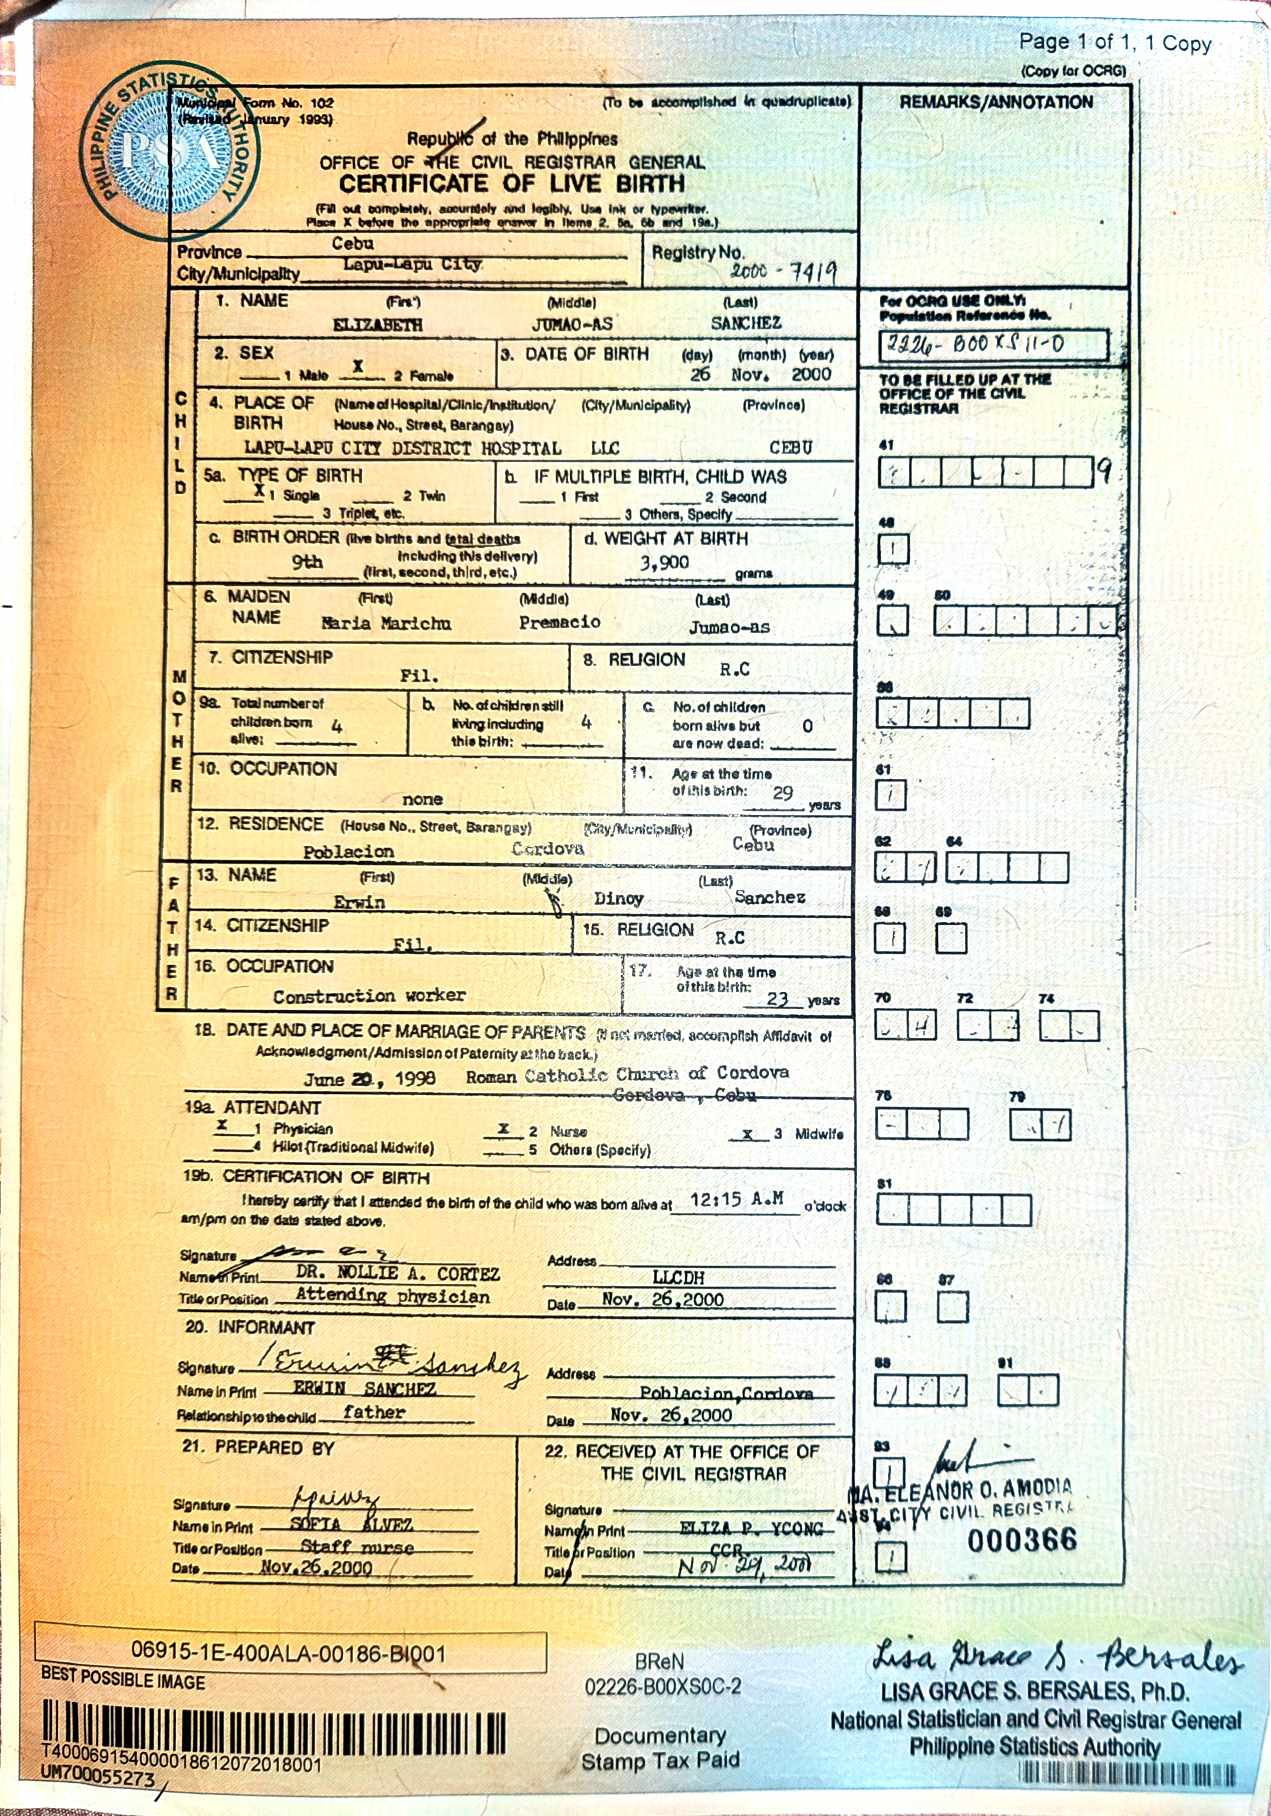 Page 1 of 1, 1 Copy
(Copy for OCRG)
PHILIPPINE STATISTICS AUTHORITY
PSA
Municipal Form No. 102
(Revised January 1993)
(To be accomplished in quadruplicate)
REMARKS/ANNOTATION
Republic of the Philippines
OFFICE OF THE CIVIL REGISTRAR GENERAL
CERTIFICATE OF LIVE BIRTH
(Fill out completely, accurately and legibly. Use ink or typewriter.
Place X before the appropriate answer in Items 2, 5a, 5b and 19a.)
Province Cebu
City/Municipality Lapu-Lapu City
Registry No.
2000 - 7419
CHILD
1. NAME (First) (Middle) (Last)
ELIZABETH JUMAO-AS SANCHEZ
For OCRG USE ONLY:
Population Reference No.
2226- B00XS11-0
2. SEX
1 Male X 2 Female
3. DATE OF BIRTH (day) (month) (year)
26 Nov. 2000
TO BE FILLED UP AT THE
OFFICE OF THE CIVIL
REGISTRAR
4. PLACE OF BIRTH (Name of Hospital/Clinic/Institution/ House No., Street, Barangay) (City/Municipality) (Province)
LAPU-LAPU CITY DISTRICT HOSPITAL LLC CEBU
41
9
5a. TYPE OF BIRTH
X 1 Single 2 Twin
3 Triplet, etc.
b. IF MULTIPLE BIRTH, CHILD WAS
1 First 2 Second
3 Others, Specify
48
1
c. BIRTH ORDER (live births and fetal deaths
including this delivery)
9th
(first, second, third, etc.)
d. WEIGHT AT BIRTH
3,900 grams
49 50
MOTHER
6. MAIDEN NAME (First) (Middle) (Last)
Maria Marichu Premacio Jumao-as
7. CITIZENSHIP
Fil.
8. RELIGION
R.C
56
9a. Total number of
children born
alive: 4
b. No. of children still
living including
this birth: 4
c. No. of children
born alive but
are now dead: 0
10. OCCUPATION
none
11. Age at the time
of this birth: 29 years
61
1
12. RESIDENCE (House No., Street, Barangay) (City/Municipality) (Province)
Poblacion Cordova Cebu
62 64
FATHER
13. NAME (First) (Middle) (Last)
Erwin Dinoy Sanchez
68 69
1
14. CITIZENSHIP
Fil.
15. RELIGION
R.C
16. OCCUPATION
Construction worker
17. Age at the time
of this birth:
23 years
70 72 74
18. DATE AND PLACE OF MARRIAGE OF PARENTS (If not married, accomplish Affidavit of
Acknowledgment/Admission of Paternity at the back.)
June 20, 1998 Roman Catholic Church of Cordova
Cordova, Cebu
76 79
19a. ATTENDANT
X 1 Physician X 2 Nurse X 3 Midwife
4 Hilot (Traditional Midwife) 5 Others (Specify)
19b. CERTIFICATION OF BIRTH
I hereby certify that I attended the birth of the child who was born alive at 12:15 A.M o'clock
am/pm on the date stated above.
81
Signature
Name in Print DR. NOLLIE A. CORTEZ
Title or Position Attending physician
Address
LLCDH
Date Nov. 26,2000
86 87
20. INFORMANT
Signature Erwin Sanchez
Name in Print ERWIN SANCHEZ
Relationship to the child father
Address
Poblacion,Cordova
Date Nov. 26,2000
88 91
21. PREPARED BY
Signature
Name in Print SOFIA ALVEZ
Title or Position Staff nurse
Date Nov.26,2000
22. RECEIVED AT THE OFFICE OF
THE CIVIL REGISTRAR
Signature
Name in Print ELIZA P. YCONG
Title or Position CCR
Date Nov. 29, 2000
93
1
MA. ELEANOR O. AMODIA
ASST. CITY CIVIL REGISTRA
94
1
000366
06915-1E-400ALA-00186-BI001
BEST POSSIBLE IMAGE
T400069154000018612072018001
UM700055273
BReN
02226-B00XS0C-2
Documentary
Stamp Tax Paid
Lisa Grace S. Bersales
LISA GRACE S. BERSALES, Ph.D.
National Statistician and Civil Registrar General
Philippine Statistics Authority